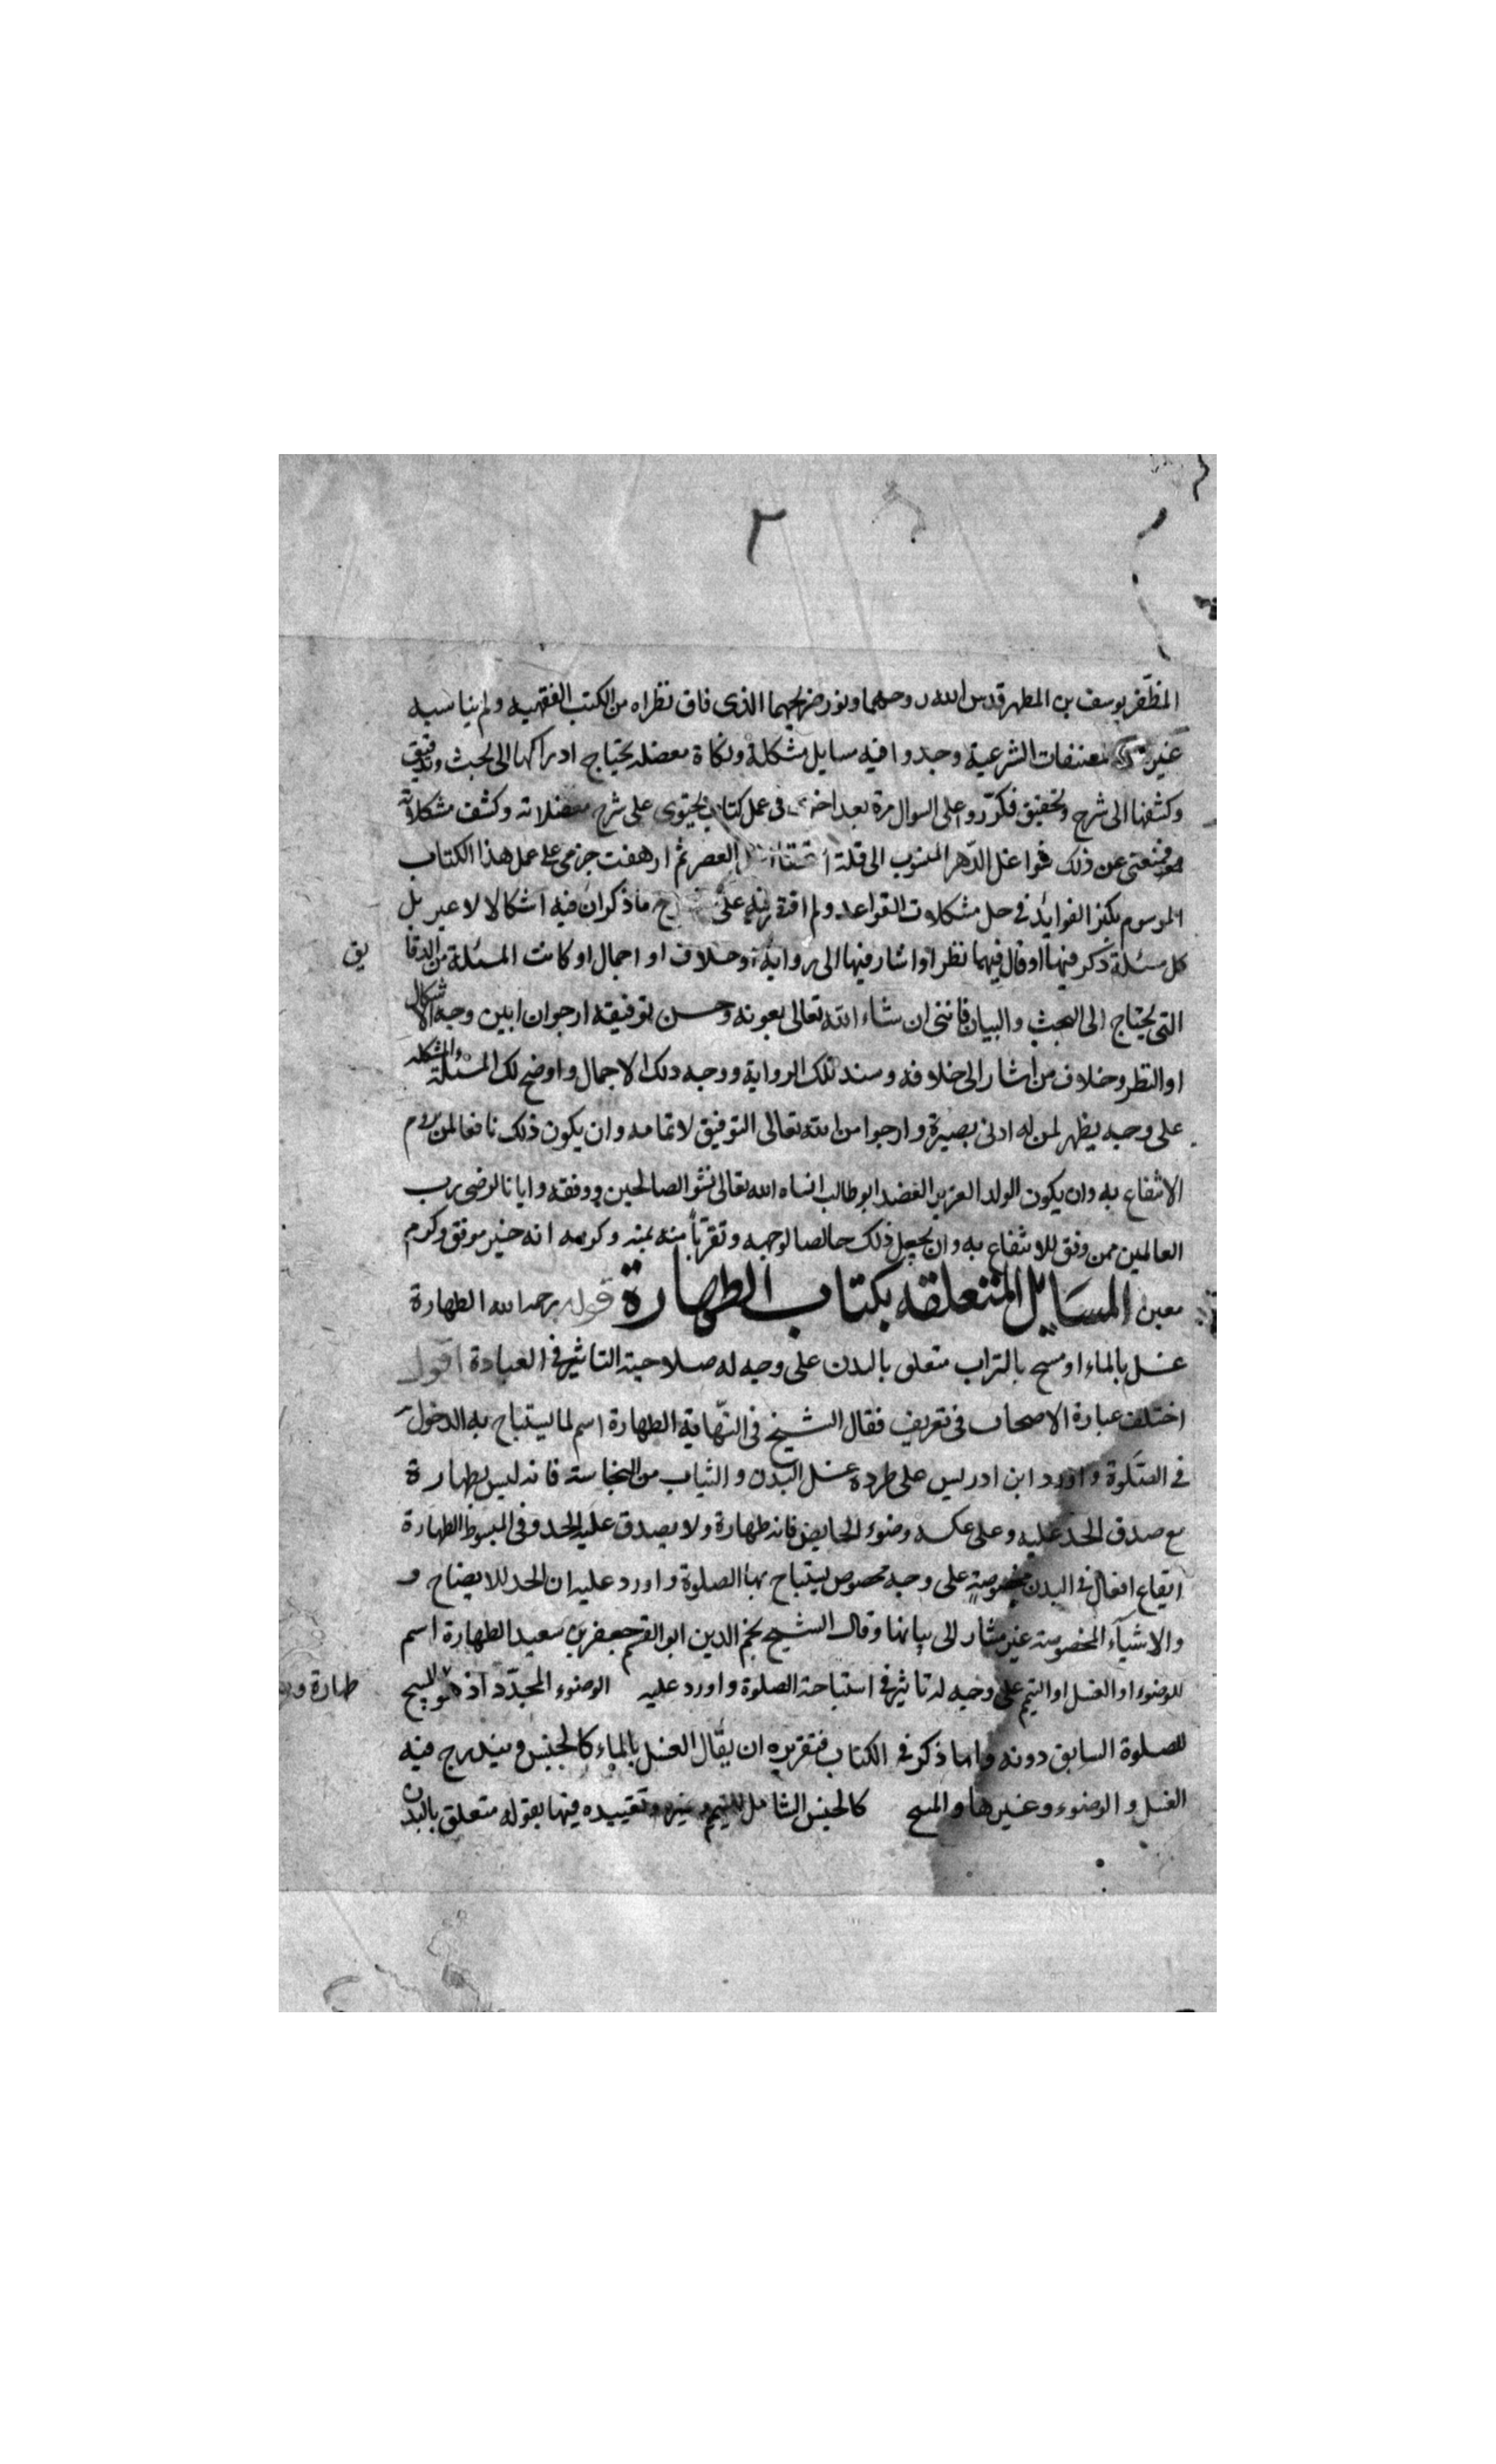 ٢
المظفر يوسف بن المطهر قدس الله روحهما ونور ضريحهما الذى فاق نظراه من الكتب الفقهيه ولم يناسبه
غيره من مصنفات الشرعية وجدوا فيه مسايل مشكلة ونكاة معضله يحتاج ادراكها الى بحث وتدقيق
وكشفها الى شرح وتحقيق فكرروا على السوال مرة بعد اخرى فى عمل كتاب يحتوى على شرح معضلاته وكشف مشكلاته
فمنعتنى عن ذلك شواغل الدهر المنسوب الى قلة العصر ثم ارهفت عزمى على عمل هذا الكتاب
الموسوم بكنز الفوايد فى حل مشكلات القواعد ولم اقتصر فيه على ما ذكر ان فيه اشكالا لا غير بل
كل مسئلة ذكر فيها او قال فيها نظر او اشار فيها الى رواية او خلاف او اجمال او كانت المسئلة من الدقا يق
التى يحتاج الى البحث والبيان فاننى ان شاء الله تعالى بعونه وحسن توفيقه ارجو ان ابين وجه الاشكال
او النظر وخلاف من اشار الى خلافه وسند تلك الرواية ووجه ذلك الاجمال واوضح لك المسئلة المشكله
على وجه يظهر لمن له ادنى بصيرة وارجوا من الله تعالى التوفيق لاتمامه وان يكون ذلك نافعا لمن يروم
الانتفاع به وان يكون الولد العزيز العضد ابو طالب انشاه الله تعالى نشو الصالحين ووفقه وايانا لرضى رب
العالمين ممن وفق للانتفاع به وان يجعل ذلك خالصا لوجهه وتقربا منه بمنه وكرمه انه خير موفق وكرم
معين المسايل المتعلقه بكتاب الطهارة قوله رحمه الله الطهارة
غسل بالماء او مسح بالتراب متعلق بالبدن على وجه له صلاحية التاثير فى العبادة اقول
اختلف عبارة الاصحاب فى تعريف فقال الشيخ فى النهاية الطهارة اسم لما يستباح به الدخول
فى الصلوة واورد ابن ادريس على طرده غسل البدن والثياب من النجاسة فانه ليس بطهارة
مع صدق الحد عليه وعلى عكسه وضوء الحايض فانه طهارة ولا يصدق عليه الحد وفى المبسوط الطهارة
ايقاع افعال فى البدن مخصوصة على وجه مخصوص يستباح بها الصلوة واورد عليه ان الحد للايضاح و
والاشياء المخصوصة غير مشار الى بيانها وقال الشيخ نجم الدين ابو القسم جعفر بن سعيد الطهارة اسم
للوضوء او الغسل او التيمم على وجه له تاثير فى استباحة الصلوة واورد عليه الوضوء المجدد اذ هو طهارة
للصلوة السابق دونه واما ذكر فى الكتاب فتقريره ان يقال الغسل بالماء كالجنس ويندرج فيه
الغسل والوضوء وغيرها والمسح كالجنس الشامل للتيمم وغيره وتقييده فيها بقوله متعلق بالبدن